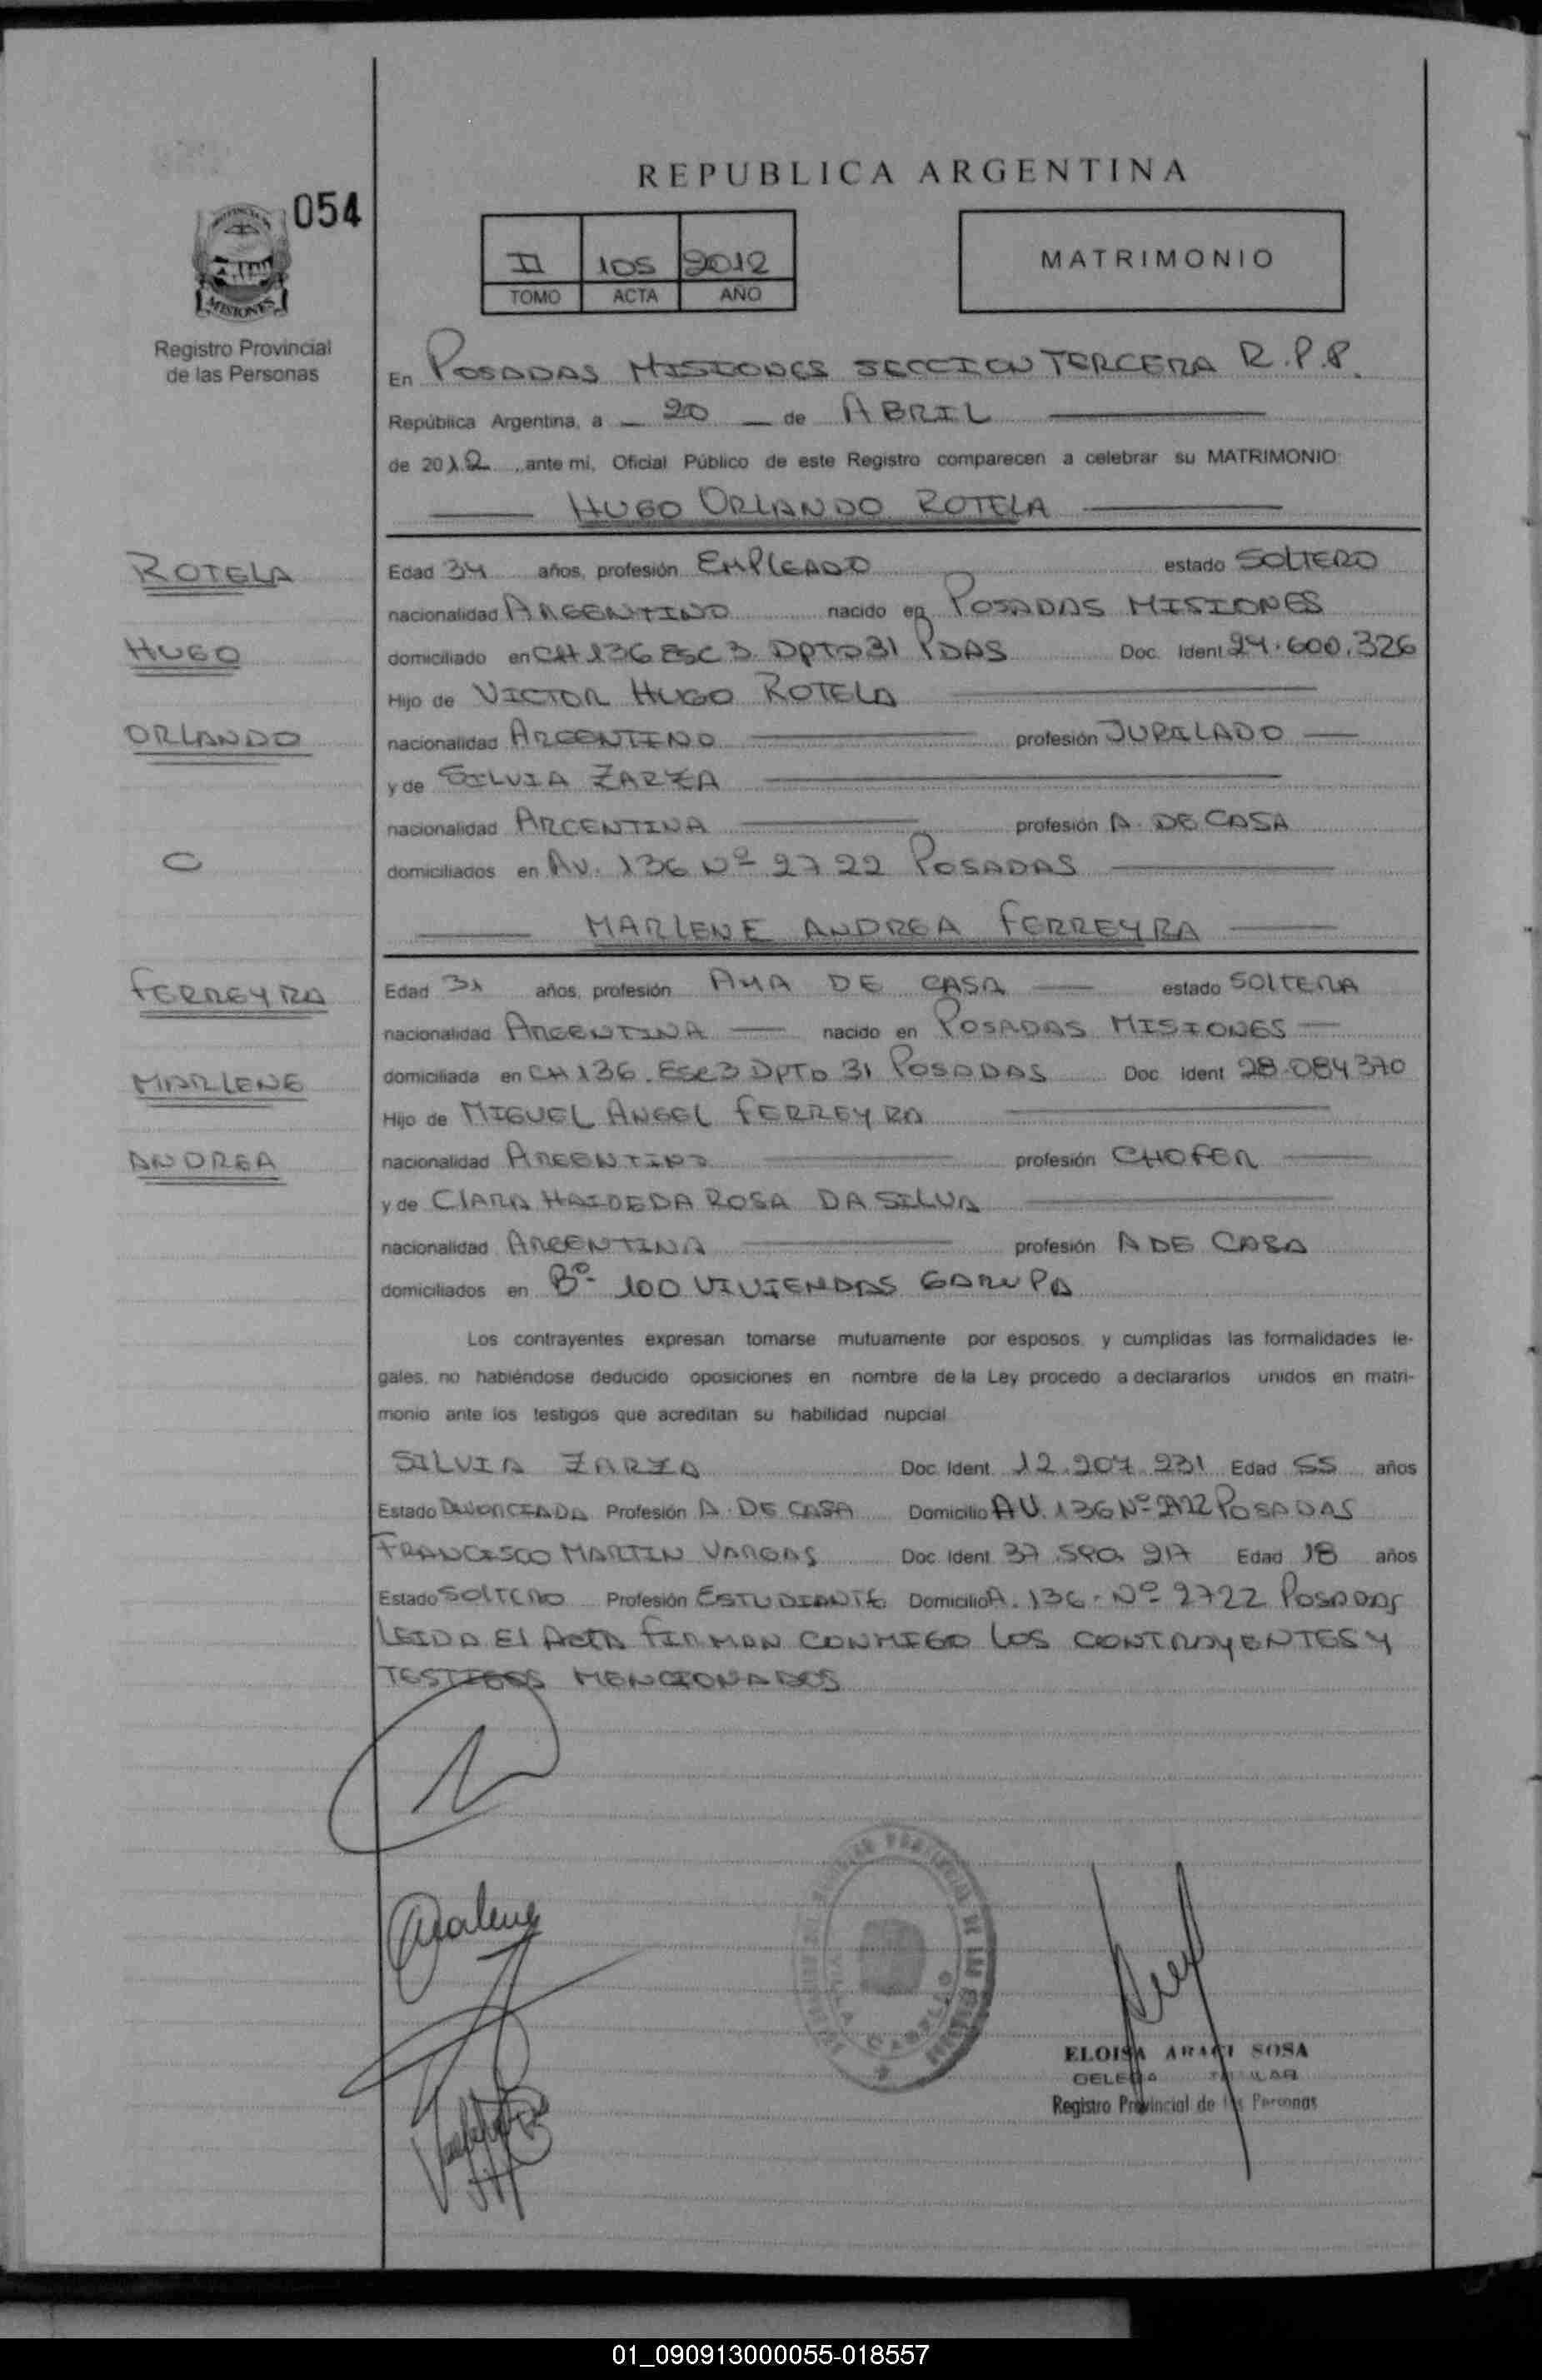 REPUBLICA ARGENTINA
054
II 105 2012
TOMO ACTA AÑO
MATRIMONIO
MISIONES
Registro Provincial
de las Personas
En POSADAS MISIONES SECCION TERCERA R.P.P.
República Argentina, a 20 de ABRIL
de 2012, ante mi, Oficial Público de este Registro comparecen a celebrar su MATRIMONIO:
HUGO ORLANDO ROTELA
ROTELA
Edad 34 años, profesión EMPLEADO estado SOLTERO
nacionalidad ARGENTINO nacido en POSADAS MISIONES
HUGO
domiciliado en CH 136 ESC 3 DPTO 31 PDAS Doc. Ident 24.600.326
Hijo de VICTOR HUGO ROTELA
ORLANDO
nacionalidad ARGENTINO profesión JUBILADO
y de SILVIA ZARZA
nacionalidad ARGENTINA profesión A. DE CASA
C
domiciliados en AV. 136 Nº 2722 POSADAS
MARLENE ANDREA FERREYRA
FERREYRA
Edad 31 años, profesión AMA DE CASA estado SOLTERA
nacionalidad ARGENTINA nacido en POSADAS MISIONES
MARLENE
domiciliada en CH 136. ESC 3 DPTO 31 POSADAS Doc. Ident 28.084370
Hijo de MIGUEL ANGEL FERREYRA
ANDREA
nacionalidad ARGENTINO profesión CHOFER
y de CLARA HAIDEDA ROSA DA SILVA
nacionalidad ARGENTINA profesión A DE CASA
domiciliados en Bº 100 VIVIENDAS GARUPA
Los contrayentes expresan tomarse mutuamente por esposos, y cumplidas las formalidades le-
gales, no habiéndose deducido oposiciones en nombre de la Ley procedo a declararlos unidos en matri-
monio ante los testigos que acreditan su habilidad nupcial
SILVIA ZARZA Doc. Ident. 12.207.231 Edad 55 años
Estado DIVORCIADA Profesión A. DE CASA Domicilio AV. 136 Nº 2722 POSADAS
FRANCISCO MARTIN VARGAS Doc. Ident. 37.590. 217 Edad 18 años
Estado SOLTERO Profesión ESTUDIANTE Domicilio A. 136 - Nº 2722 POSADAS
LEIDA El ACTA FIRMAN CONMIGO LOS CONTRAYENTES Y
TESTIGOS MENCIONADOS
Marlene
ELOISA ARACI SOSA
DELEGADA TITULAR
Registro Provincial de las Personas
01_090913000055-018557